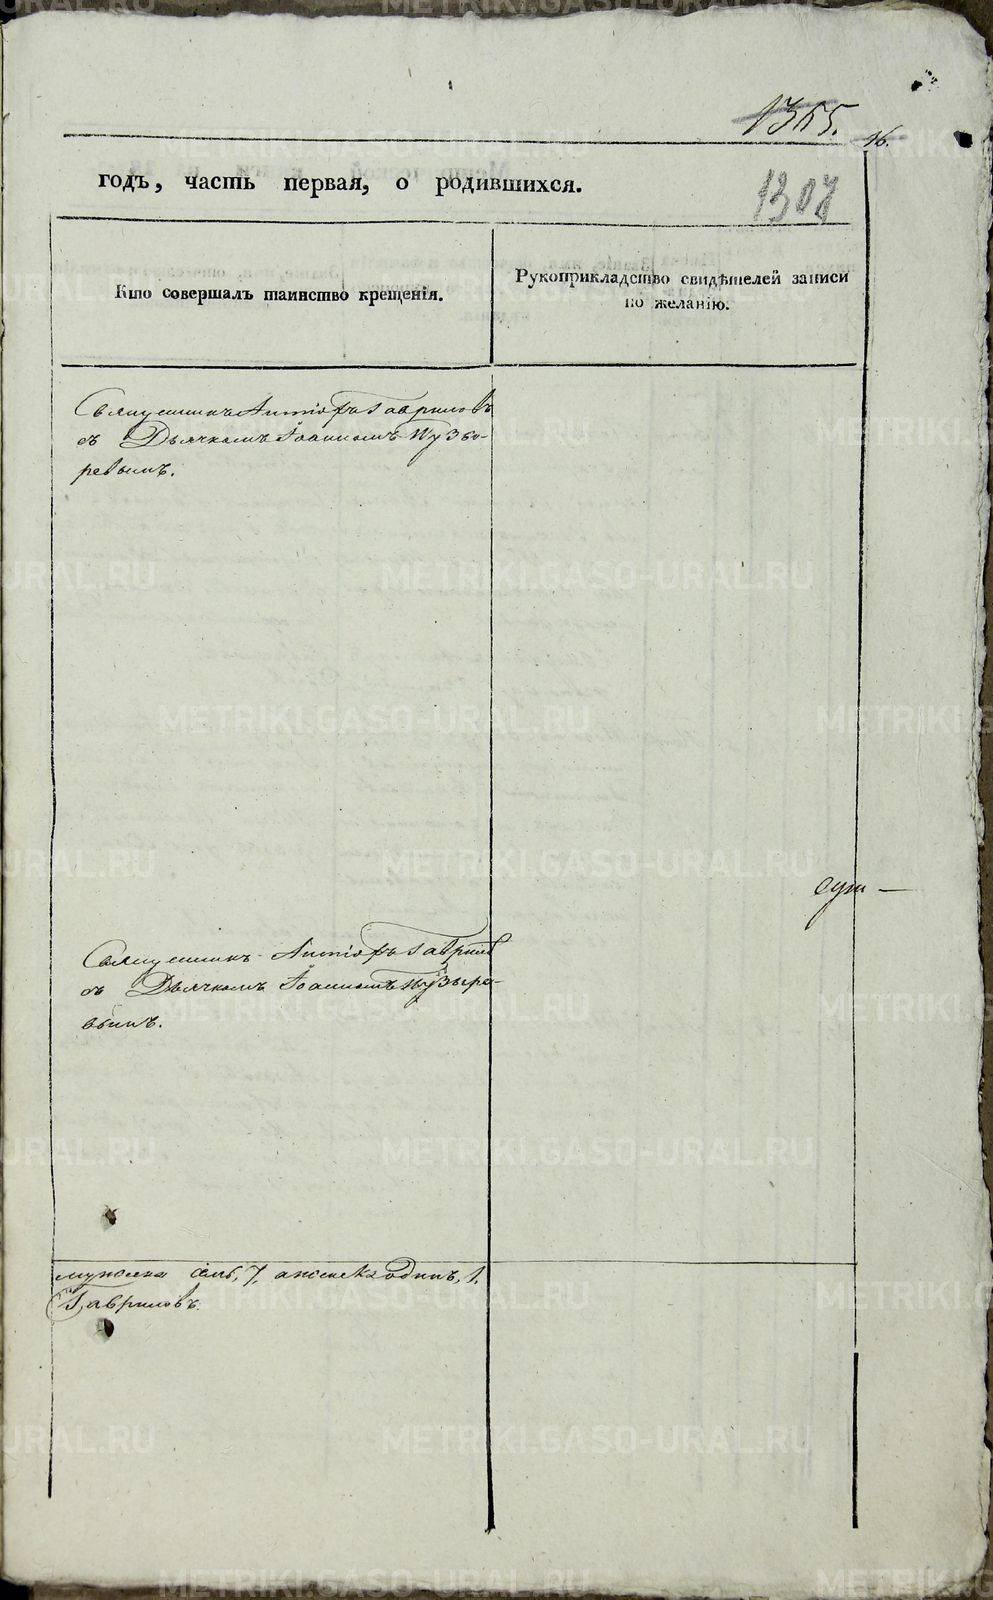 1355.
16.
годъ, часть первая, о родившихся.
1307
Кто совершалъ таинство крещенія.
Рукоприкладство свидѣтелей записи
по желанію.
Священникъ Антіохъ Гавриловъ
съ Дьячкомъ Іоанномъ Пузы-
ревымъ.
Священникъ Антіохъ Гаврилов
съ Дьячкомъ Іоанномъ Пузыре-
вымъ.
мужеска 7, а женска одинъ, 1.
Гавриловъ.
METRIKI.GASO-URAL.RU